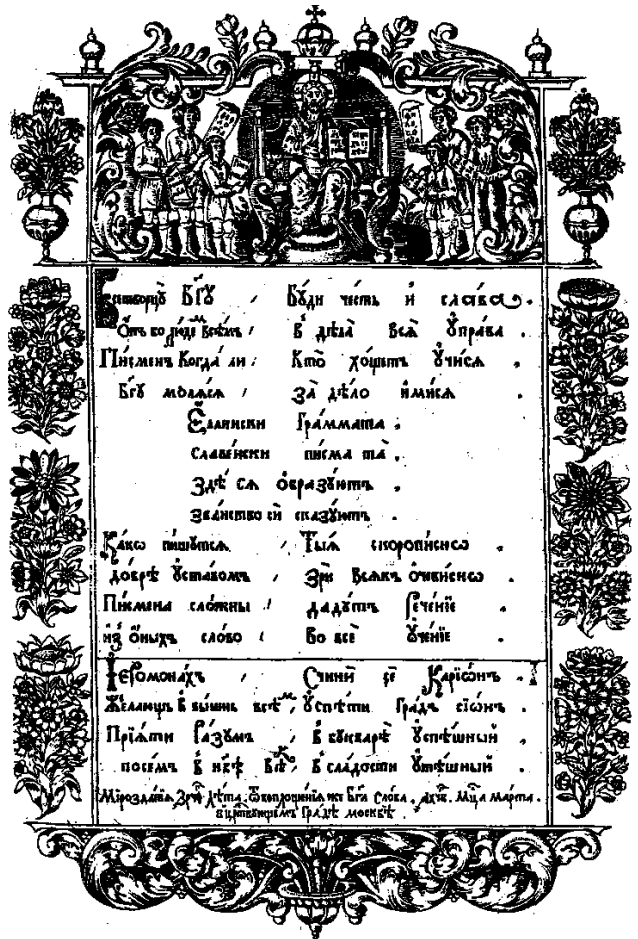 Всетворцꙋ Бг҃ꙋ , Бꙋди честь и слава .
Ѿтъ бо людеⷨ всѣмъ , в дѣла всѧ ᲂуправа .
Писменъ когда ли , Кто хощетъ ᲂучисѧ .
Бг҃ꙋ молѧсѧ , За дѣло имисѧ .
Еллински Граммата ,
Славенски писмата .
Здѣ сѧ ѻбразꙋютъ ,
званство си сказꙋютъ .
Какѡ пишꙋтсѧ , Тыѧ скорописнѡ .
Добрѣ ᲂуставомъ , Зри всѧкъ ѻчевиснѡ .
Писмена сложны , дадꙋтъ Реченїе .
из ѻныхъ слово , Во все ᲂученїе .
Іеромонахъ , Счини се Карїѡнъ .
Желающъ в вышнь всѣⷨ , ᲂуспѣти Градъ сїѡнъ .
Прїѧти Разꙋмъ , в бꙋкварѣ ᲂуспѣшный ,
посемъ в нб҃ѣ вѣⷦ , в сладости ᲂутѣшный .
Мирозданїѧ , лѣта , ѿ воплощенїѧ же Бг҃а Слова , Мц҃а Марта .
в црⷭ҇твꙋющемъ Градѣ Москвѣ .